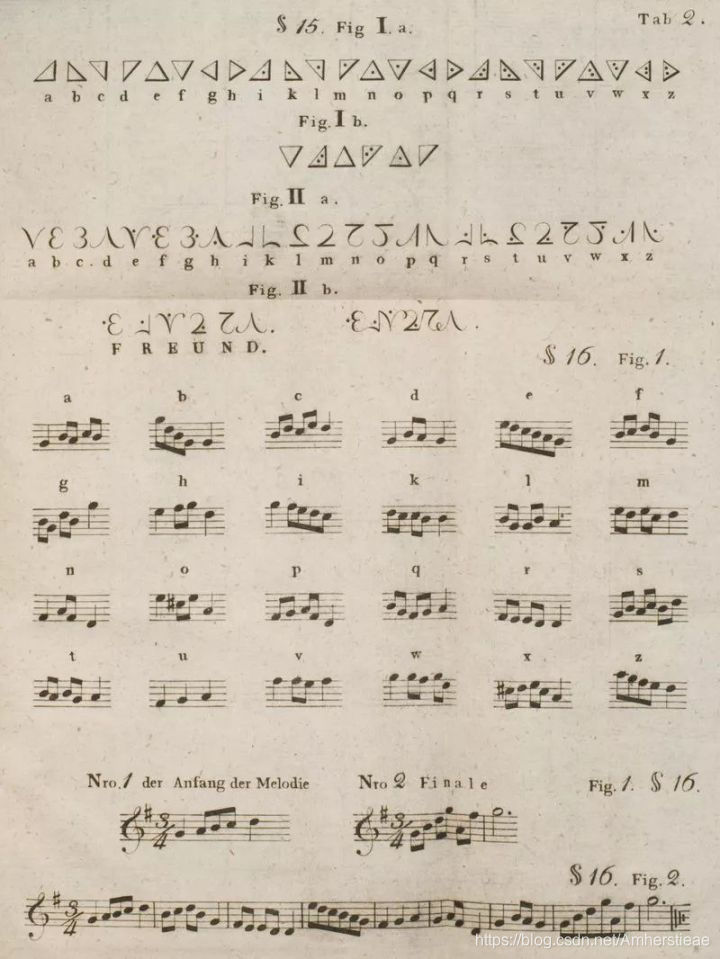 Tab 2.
§ 15. Fig I. a.
a b c d e f g h i k l m n o p q r s t u v w x z
Fig. I b.
Fig. II a.
a b c d e f g h i k l m n o p q r s t u v w x z
Fig. II b.
F R E U N D.
§ 16. Fig. 1.
a b c d e f
g h i k l m
n o p q r s
t u v w x z
Nro. 1 der Anfang der Melodie Nro 2 Finale Fig. 1. § 16.
3/4 3/4
§ 16. Fig. 2.
3/4
https://blog.csdn.net/Amherstieae